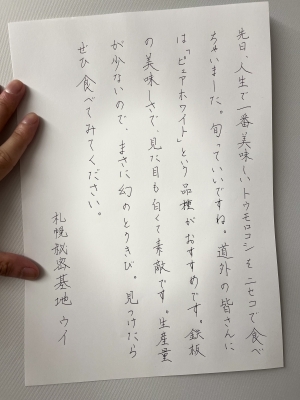 先日、人生で一番美味しいトウモロコシをニセコで食べ
ちゃいました。旬っていいですね。道外の皆さんに
は「ピュアホワイト」という品種がおすすめです。鉄板
の美味しさで、見た目も白くて素敵です。生産量
が少ないので、まさに幻のとうきび。見つけたら
ぜひ食べてみてください。
札幌秘密基地 ウイ